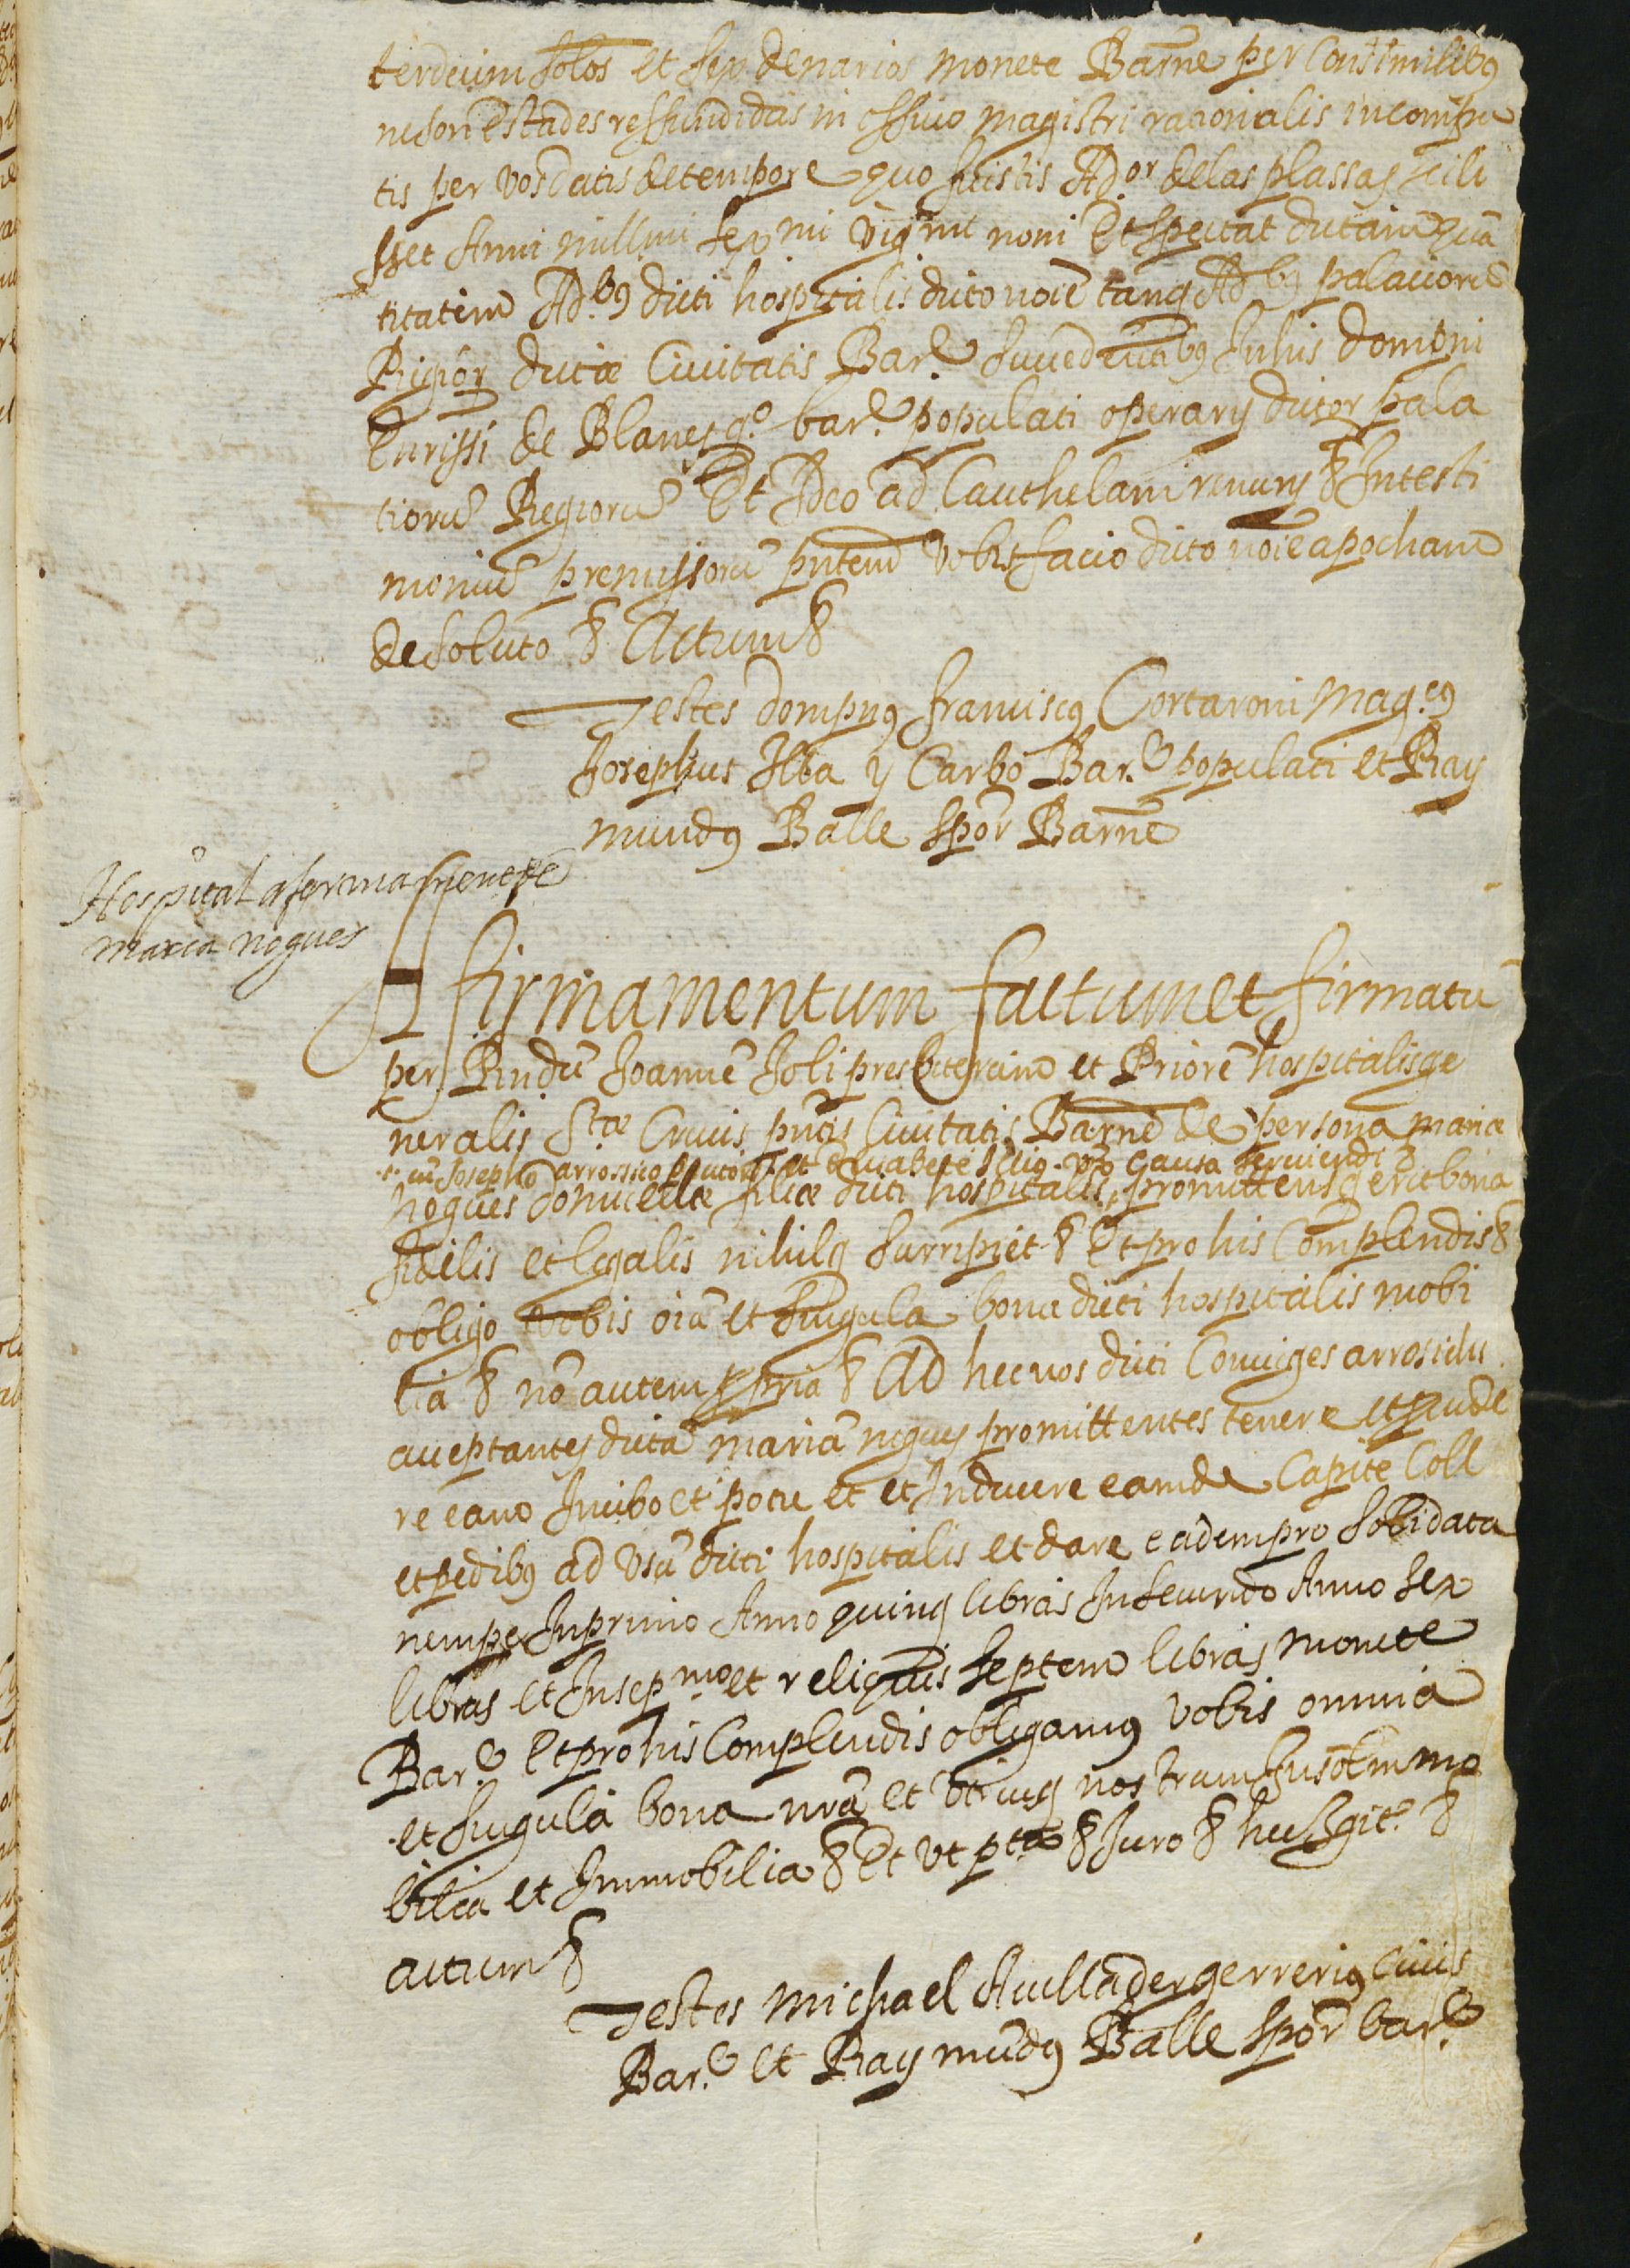 terdecim solos et sex denarios monete Barne per consimilibus
neson estades reffundidas in offico magistri racionalis in compu
tis per vos datis de tempore quo fuistis Ador de las plassas scili
sset Anni millmi sexmi vigmi noni Et spectat dictam quã
titatem Ad.bus dicti hospitalis dicto noiẽ tanq Adbus palaciorũ
Regior dictæ Civitatis Bar.e succedentibus Juliis dompni
Enrissi de Blanes q.o bar.e populati operarii dictor pala
tiorũ Regiorũ Et Ideo ad Cauthelam renuns & In testi
moniũ premissorũ pntem vobis facio dicto noiẽ apocham
de soluto & Actum &
Testes dompnus franciscus Cortaroni Mag.cus
Josephus Alba y Carbo Bar.e populati et Ray
mundus Balle spor Barne
Hospital afermament de
maria nogues
firmamentum factum et firmatũ
per Rndũ Joannẽ Joli presbiterum et Priorẽ hospitalis ge
neralis Stæ Crucis pñtis Civitatis Barne de persona mariæ
cũ Josepho arrossico et Elisabete causa serviendi &
nogues domicellæ filiæ dicti hospitalis, promittens q erit bona
fidelis et legalis nihilq surripiet & Et pro his Complendis &
obligo vobis oiã et singula bona dicti hospitalis mobi
lia & nõ autem ppria & Ad hec nos dicti Coniuges arrosichs
acceptantes dictã mariã nogues promittentes tenere et provide
re eam In cibo et potu et et Induere eam de Capite Coll
et pedibus ad usũ dicti hospitalis et dare eidem pro solidata
nempe In primo Anno quinq libras In secundo Anno sex
libras et In sepmo et reliquis septem libras monete
Bar.e Et pro his Complendis obligamus vobis omnia
et singula bona nrã et utriusq nostrum Insolm mo
bilia et Immobilia & Et ut pta & Juro & hec igit.r &
actum &
Testes Michael Avellader gerrerius civis
Bar.e et Raymũdus Balle spor bar.e